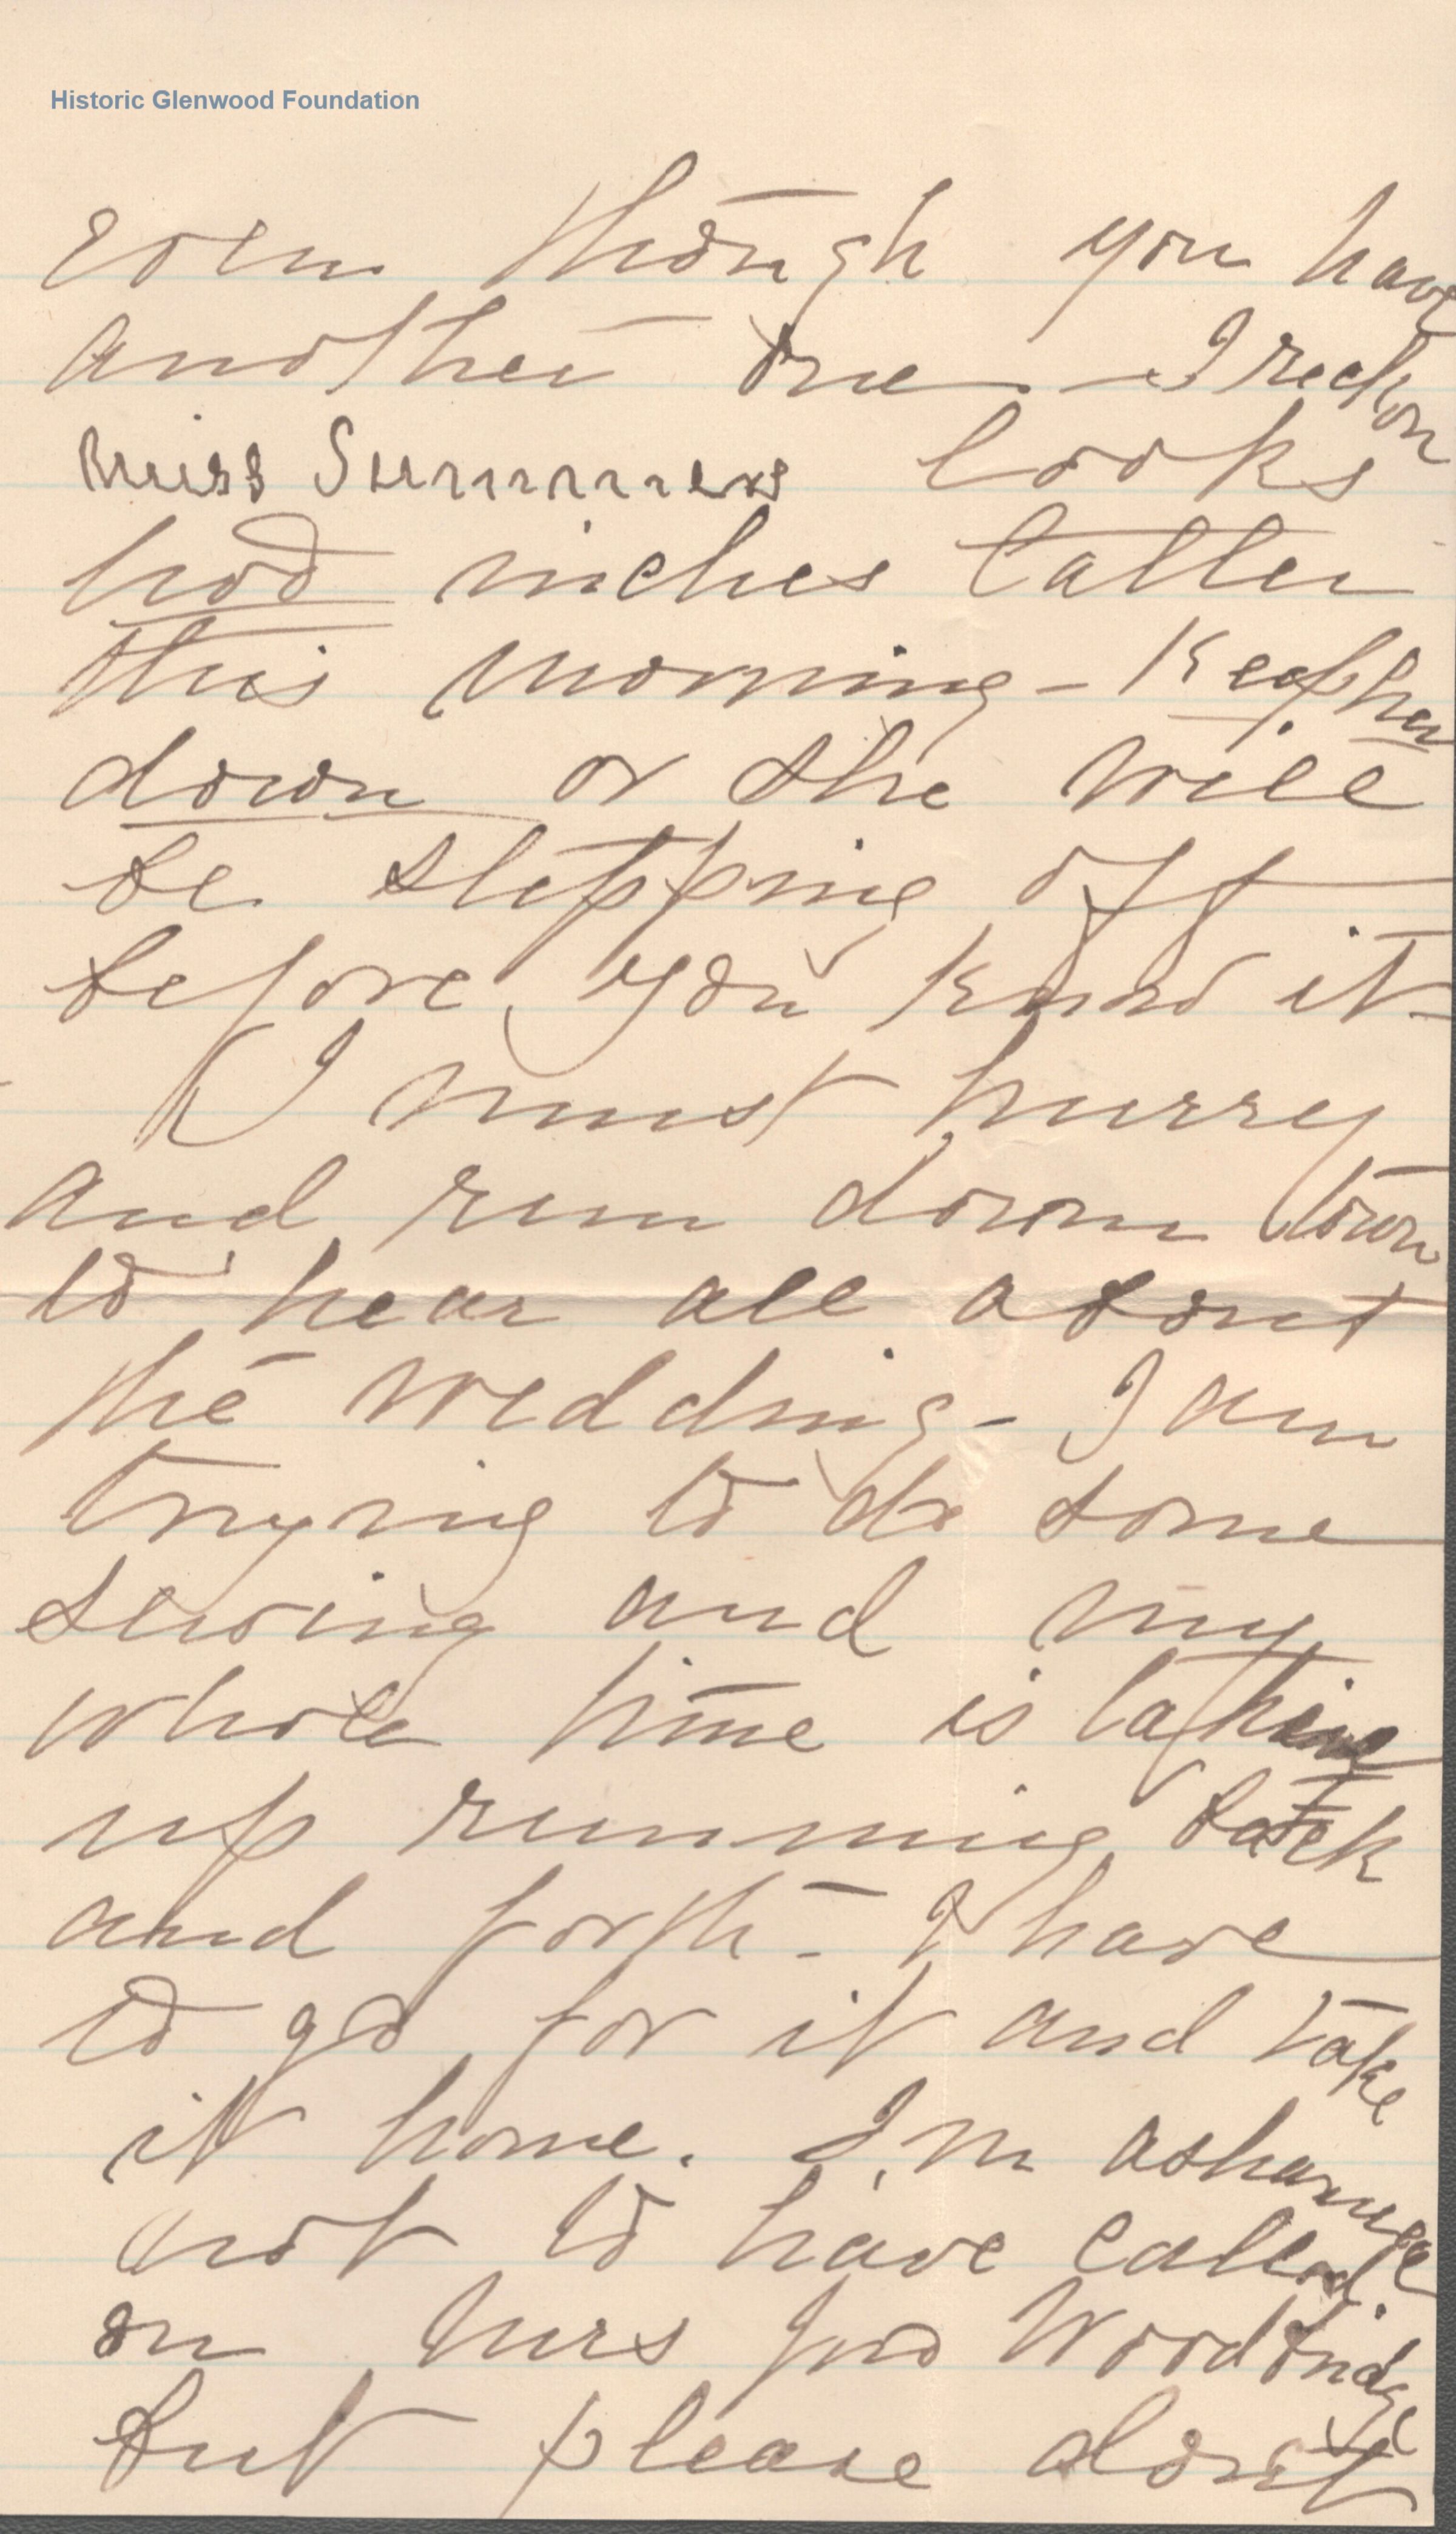 Historic Glenwood Foundation
even though you have
another one - I reckon
Miss Summers looks
two inches taller
this morning - Keep her
down or she will
be stepping off
before you know it -
I must hurry
and run down town
to hear all about
the wedding - I am
trying to do some
sewing and my
whole time is taking
up running back
and forth - I have
to go for it and take
it home. I'm ashamed
not to have called
on Mrs Jno Woodbridge
but please don't